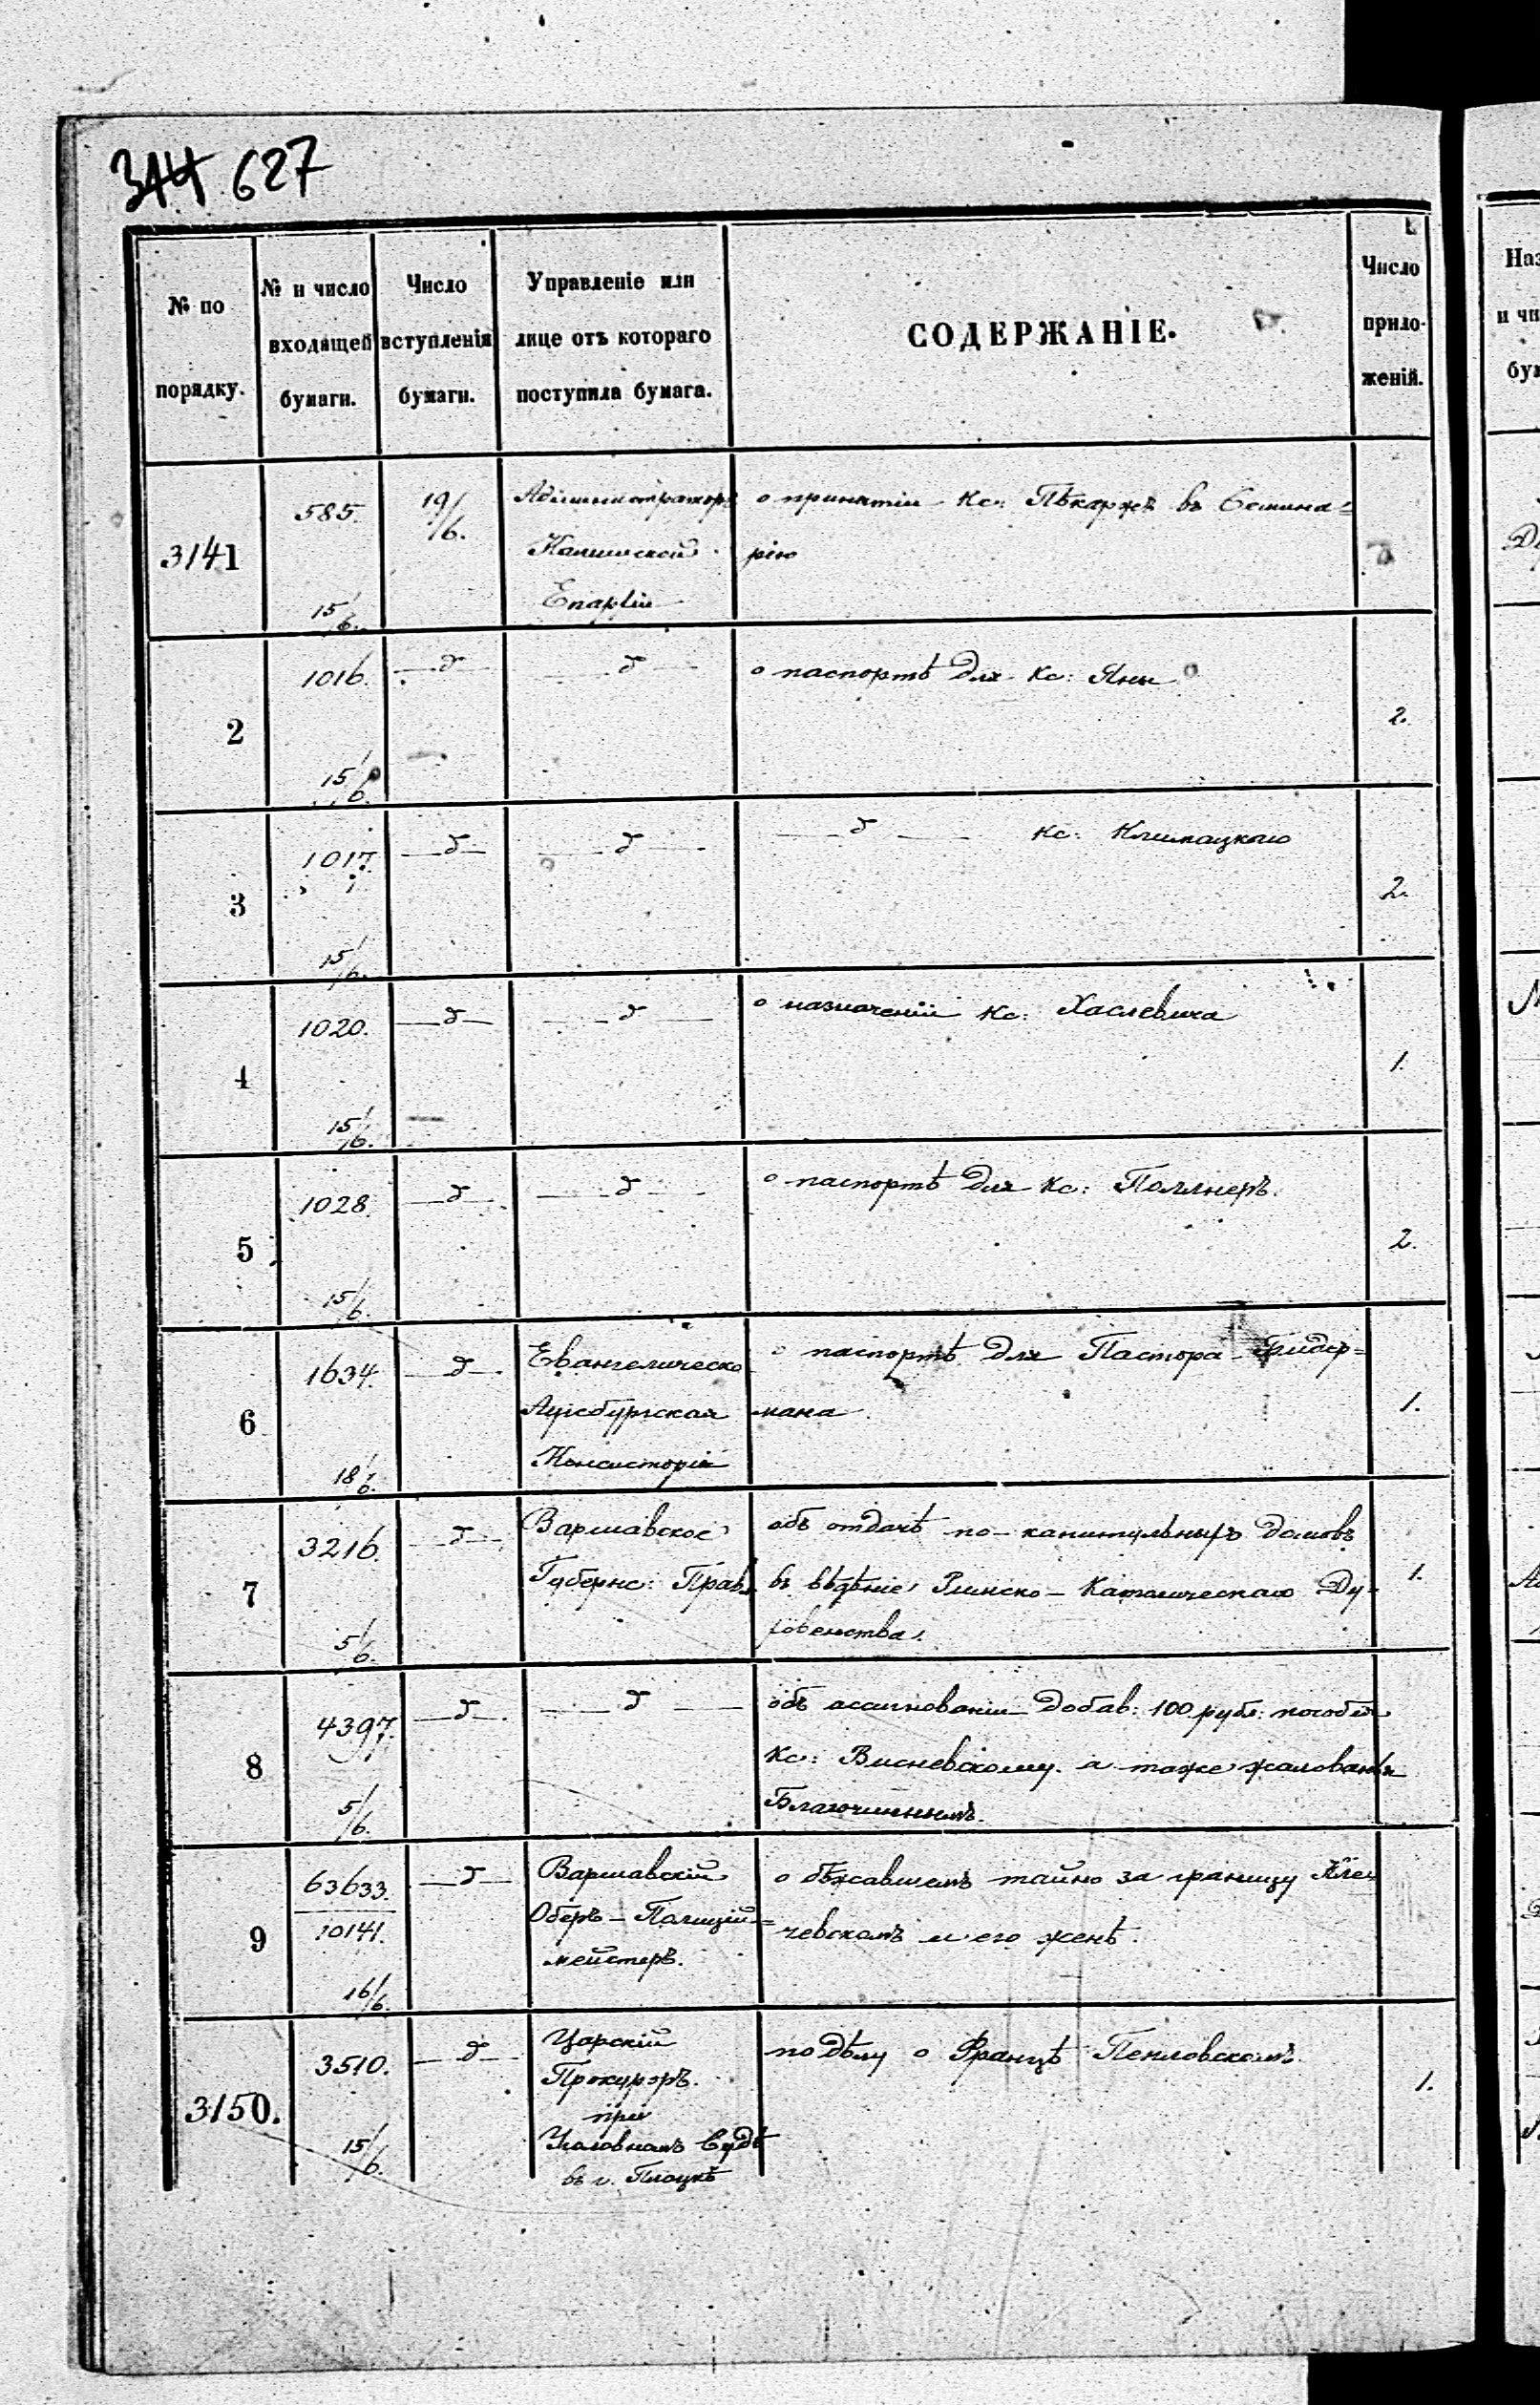 344 627
№ по порядку.
№ и число входящей бумаги.
Число вступленія бумаги.
Управленіе или лице отъ котораго поступила бумага.
СОДЕРЖАНІЕ.
Число прило- женій.
3141
585.
15/6.
19/6.
Администраторъ
Калишской
Епархіи
о принятіи Кс: Пѣкаржъ въ Семина=
рію
2
1016.
15/6.
—д—
—д—
о паспортѣ для Кс: Яны
2.
3
1017.
15/6.
—д—
—д—
—д— Кс: Климацкаго
2.
4
1020.
15/6.
—д—
—д—
о назначеніи Кс: Хаслевича
1.
5
1028.
15/6.
—д—
—д—
о паспортѣ для Кс: Поллнеръ.
2.
6
1634.
18/6.
—д—
Евангелическо
Аугсбургская
Консисторія
о паспортѣ для Пастора Бидер=
мана
1.
7
3216.
5/6.
—д—
Варшавское
Губернс: Прав:
объ отдачѣ по-капитульныхъ домовъ
въ вѣдѣніе Римско-Католическаго Ду-
ховенства.
1.
8
4397.
5/6.
—д—
—д—
объ ассигнованіи добав: 100 рубл: пособія
Кс: Висневскому. а также жалованья
Благочиннымъ.
9
63633.
10141.
16/6.
—д—
Варшавскій
Оберъ-Полицій=
мейстеръ.
о бѣжавшемъ тайно за границу Кле
чевскомъ и его женѣ.
3150.
3510.
15/6.
—д—
Царскій
Прокуроръ.
при
Уголовномъ Судѣ
въ г. Плоцкѣ
по дѣлу о Францѣ Пенловскомъ
1.